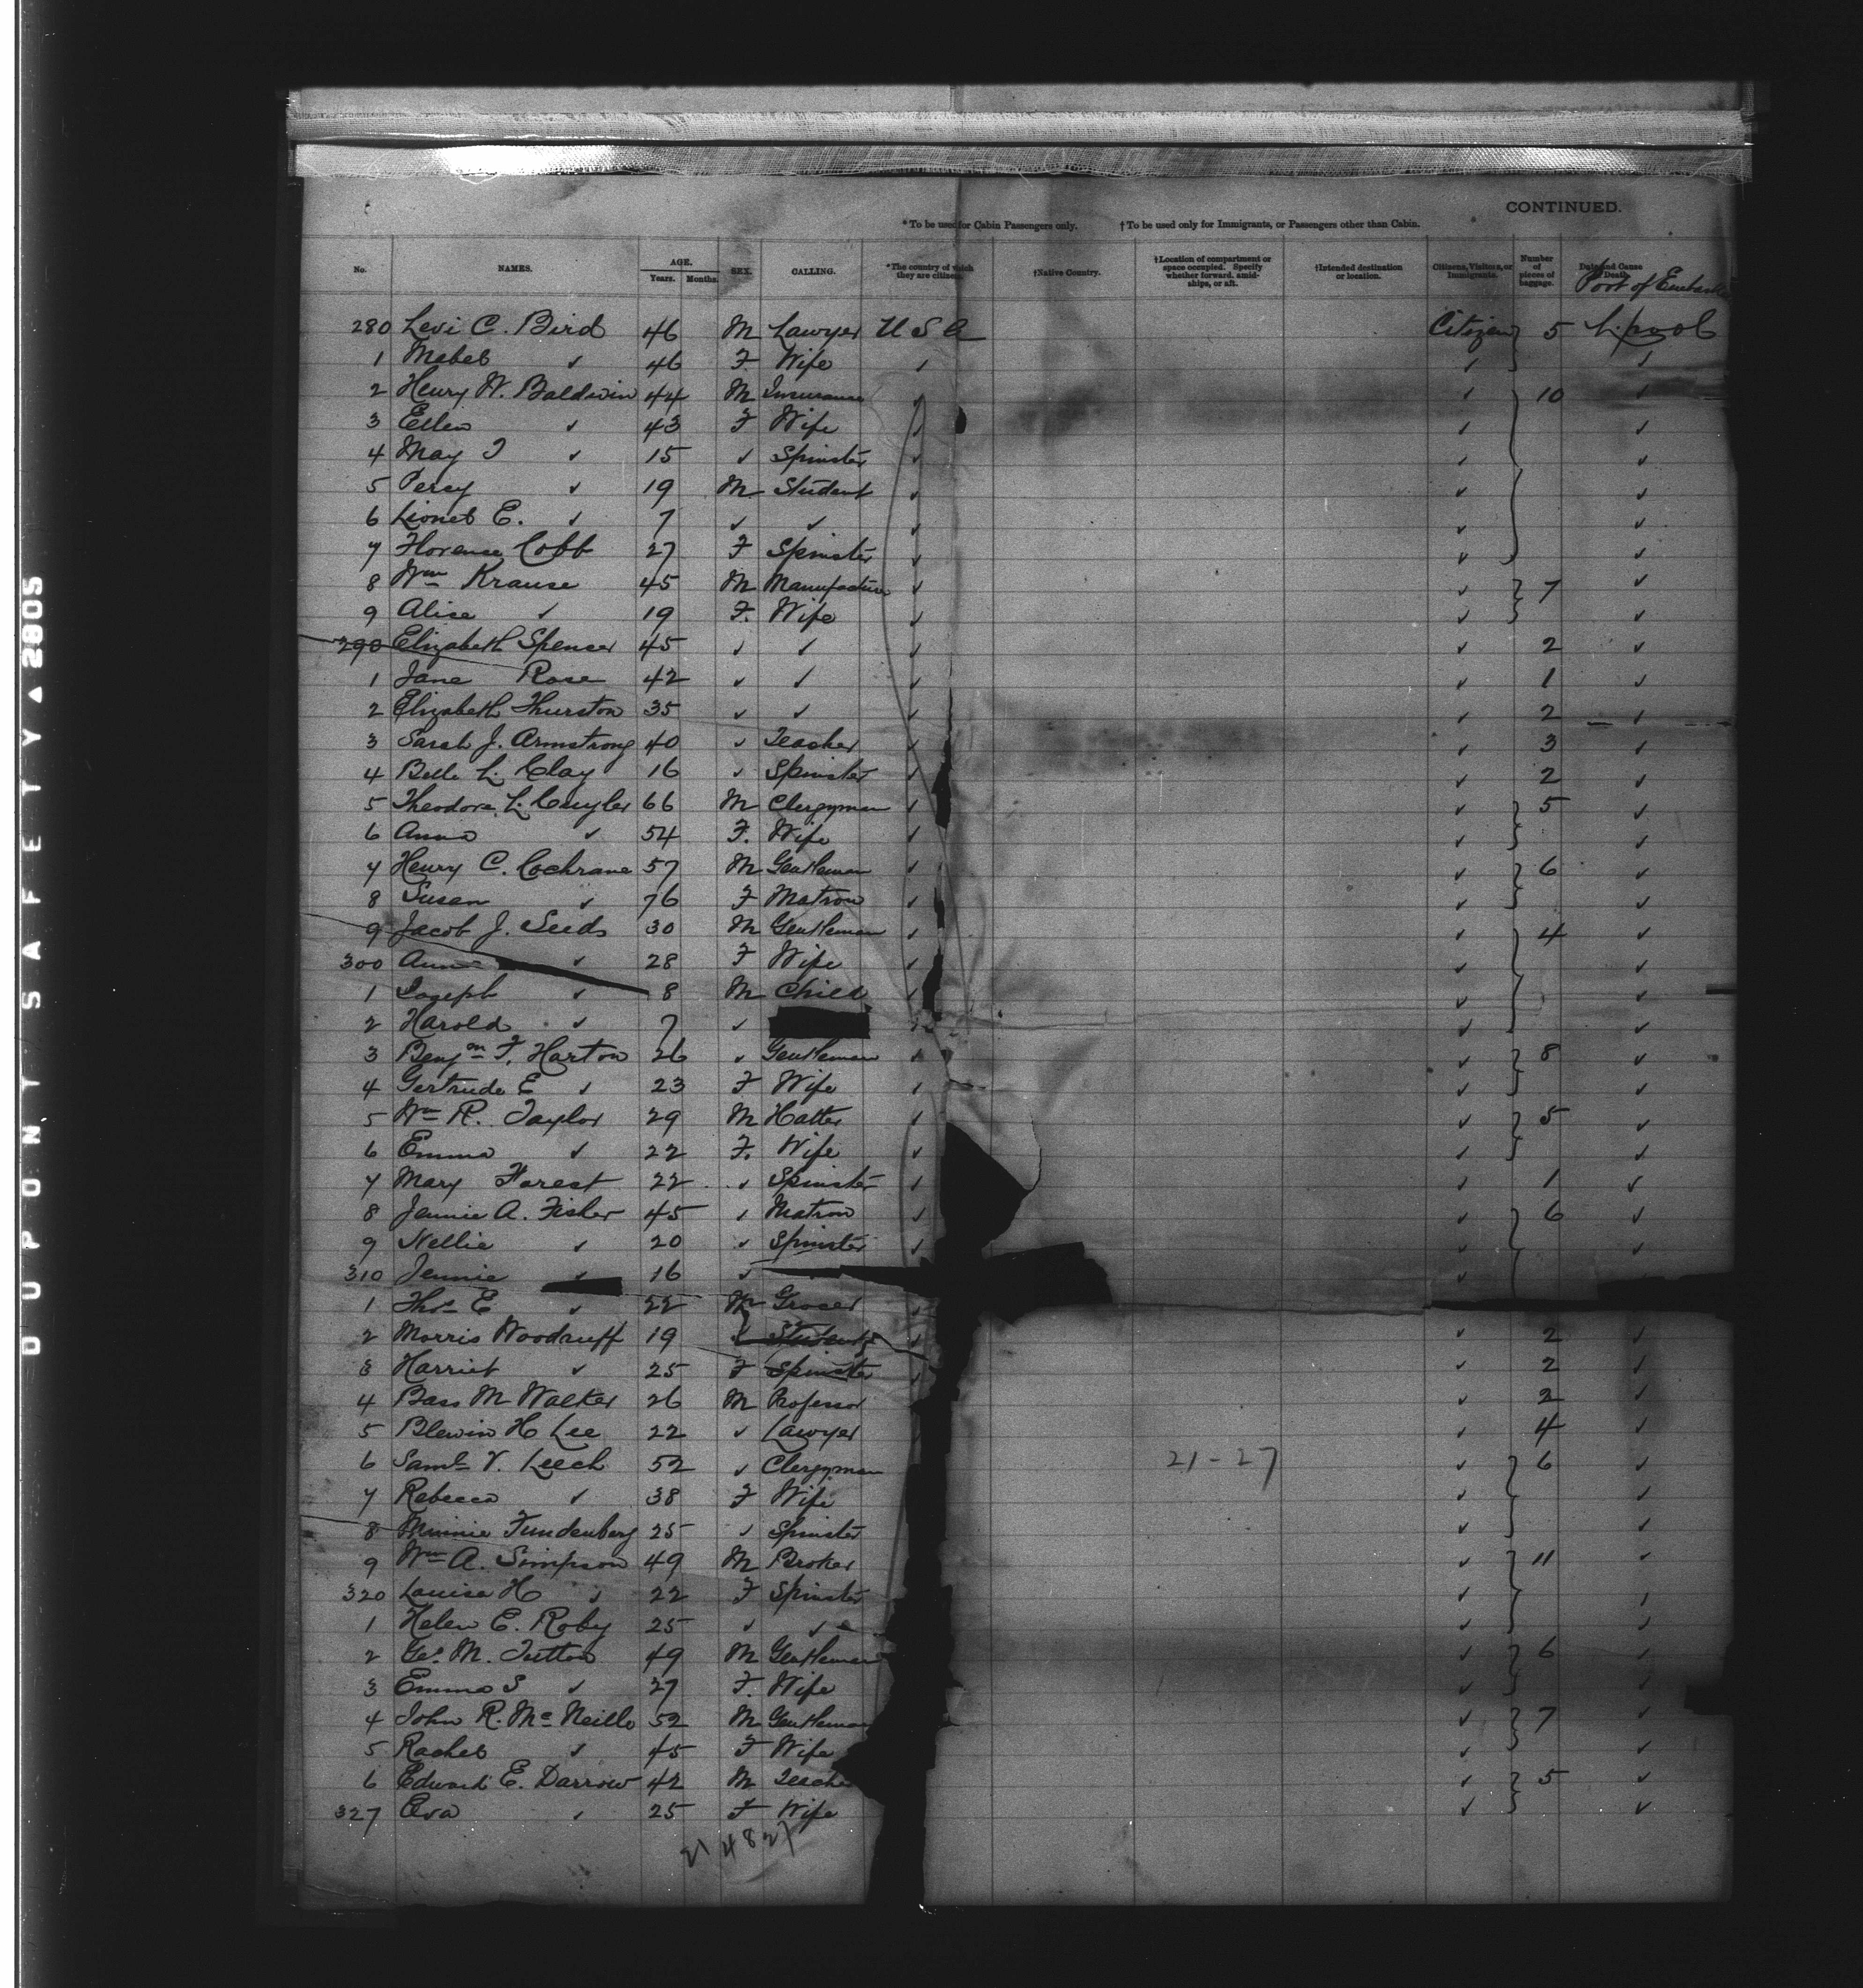 CONTINUED.
* To be used for Cabin Passengers only. † To be used only for Immigrants, or Passengers other than Cabin.
No. NAMES. AGE. Years. Months. SEX. CALLING. *The country of which they are citizens. †Native Country. †Location of compartment or space occupied. Specify whether forward, amidships, or aft. †Intended destination or location. Citizens, Visitors, or Immigrants. Number of pieces of baggage. Date and Cause of Death.
Port of Embark
280 Levi C. Bird 46 M Lawyer U S A Citizen } 5 L.pool
1 Mabel ✓ 46 F. Wife ✓ ✓ ✓
2 Henry W. Baldwin 44 M Insurance ✓ ✓ } 10 ✓
3 Ellen ✓ 43 F Wife ✓ ✓ ✓
4 May ✓ 15 ✓ Spinster ✓ ✓ ✓
5 Percy ✓ 19 M Student ✓ ✓ ✓
6 Lionel E. ✓ 7 ✓ ✓ ✓ ✓ ✓
7 Florence Cobb 27 F Spinster ✓ ✓ ✓
8 Wm Krause 45 M Manufacturer ✓ ✓ } 7 ✓
9 Alice ✓ 19 F. Wife ✓ ✓ ✓
290 Elizabeth Spencer 45 ✓ ✓ ✓ ✓ 2 ✓
1 Jane Rose 42 ✓ ✓ ✓ ✓ 1 ✓
2 Elizabeth Thurston 35 ✓ ✓ ✓ ✓ 2 ✓
3 Sarah J. Armstrong 40 ✓ Teacher ✓ ✓ 3 ✓
4 Belle L. Clay 16 ✓ Spinster ✓ ✓ 2 ✓
5 Theodore L. Cuyler 66 M Clergyman ✓ ✓ } 5 ✓
6 Anna ✓ 54 F. Wife ✓ ✓ ✓
7 Henry C. Cochrane 57 M Gentleman ✓ ✓ } 6 ✓
8 Susan ✓ 76 F Matron ✓ ✓ ✓
9 Jacob J. Seeds 30 M Gentleman ✓ ✓ } 4 ✓
300 Ann ✓ 28 F Wife ✓ ✓ ✓
1 Joseph ✓ 8 M Child ✓ ✓ ✓
2 Harold ✓ 7 ✓ ✓ ✓ ✓
3 Benjm F. Harton 26 ✓ Gentleman ✓ ✓ } 8 ✓
4 Gertrude E ✓ 23 F Wife ✓ ✓ ✓
5 Wm R. Taylor 29 M Hatter ✓ ✓ } 5 ✓
6 Emma ✓ 22 F. Wife ✓ ✓ ✓
7 Mary Forest 22 ✓ Spinster ✓ ✓ 1 ✓
8 Jennie A. Fisher 45 ✓ Matron ✓ ✓ } 6 ✓
9 Nellie ✓ 20 ✓ Spinster ✓ ✓ ✓
310 Jennie ✓ 16 ✓ ✓
1 Thos E ✓ 22 M Grocer ✓
2 Morris Woodruff 19 ✓ Student ✓ ✓ 2 ✓
3 Harriet ✓ 25 F Spinster ✓ ✓ 2 ✓
4 Bass M Walker 26 M Professor ✓ 2 ✓
5 Blewin H Lee 22 ✓ Lawyer ✓ 4 ✓
6 Saml V. Leech 52 ✓ Clergyman 21-27 ✓ } 6 ✓
7 Rebecca ✓ 38 F Wife ✓ ✓
8 Minnie Fundenberg 25 ✓ Spinster ✓ ✓
9 Wm A. Simpson 49 M Broker ✓ } 11 ✓
320 Louisa H ✓ 22 F Spinster ✓ ✓
1 Helen E. Roby 25 ✓ ✓ ✓ ✓
2 Geo M. Tutton 49 M Gentleman ✓ } 6 ✓
3 Emma S ✓ 27 F. Wife ✓ ✓
4 John R. McNeille 52 M Gentleman ✓ } 7 ✓
5 Rachel ✓ 45 F Wife ✓ ✓
6 Edward E. Darrow 42 M Teacher ✓ } 5 ✓
327 Eva ✓ 25 F Wife ✓ ✓
21 48 27
DUPONT SAFETY ▲ 2805